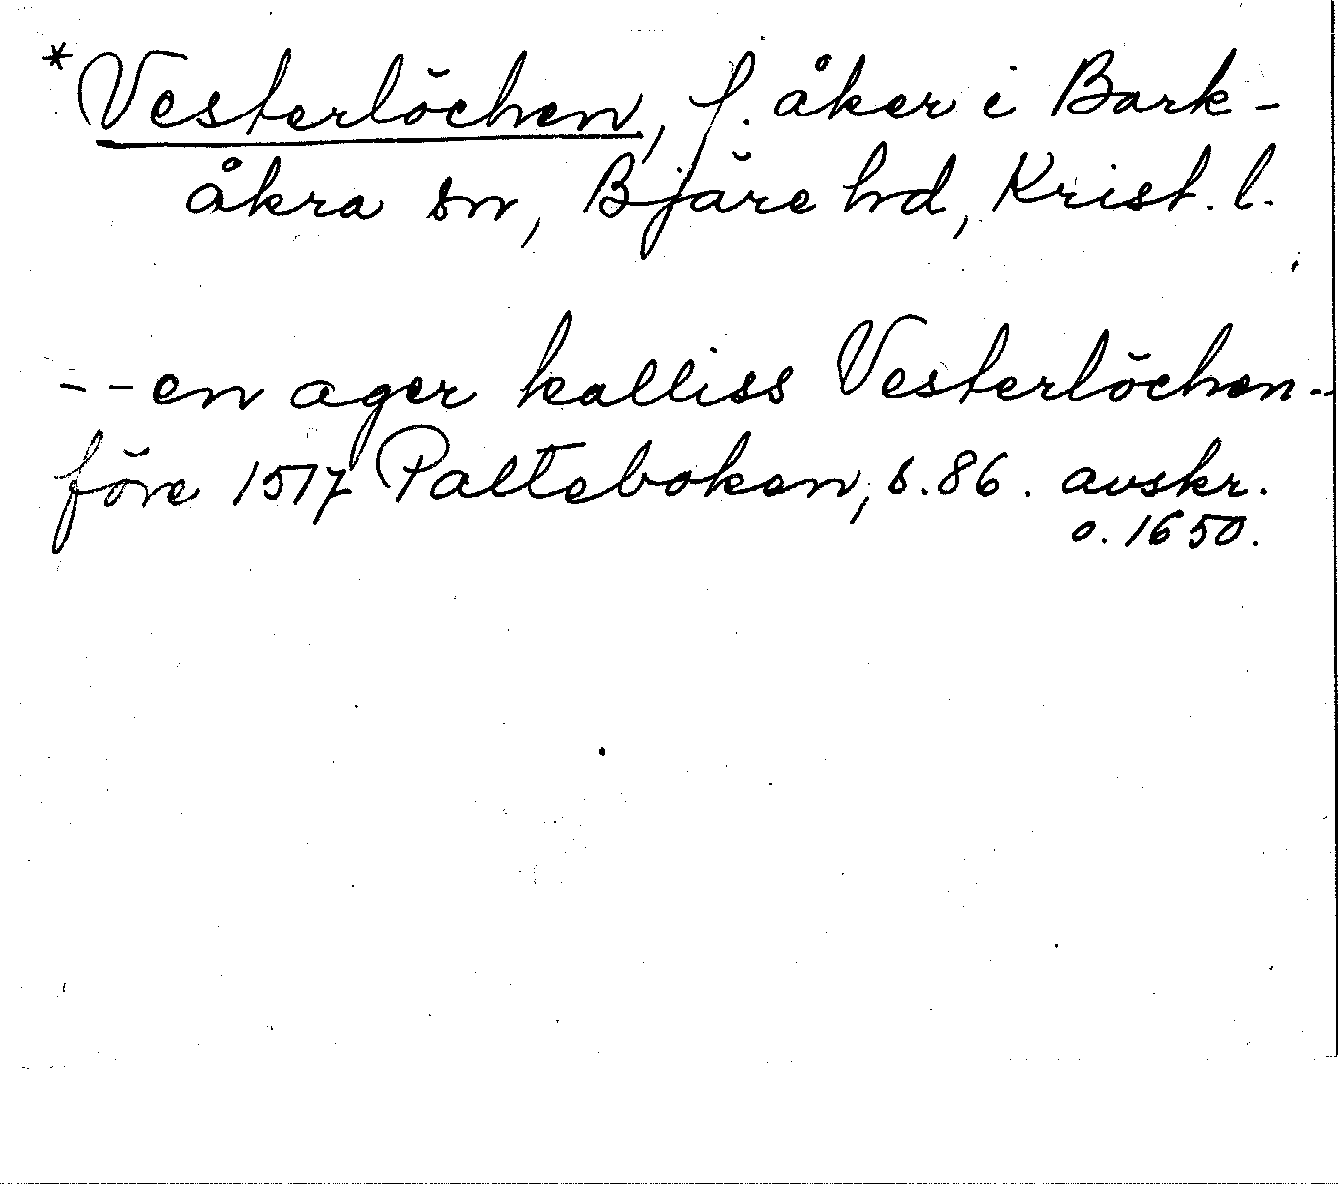 *Vesterlöchen, f. åker i Bark-
åkra sn, Bjäre hd, Krist. l.
--en ager kalliss Vesterlöchen--
före 1517 Palteboken, s. 86. avskr.
o. 1650.